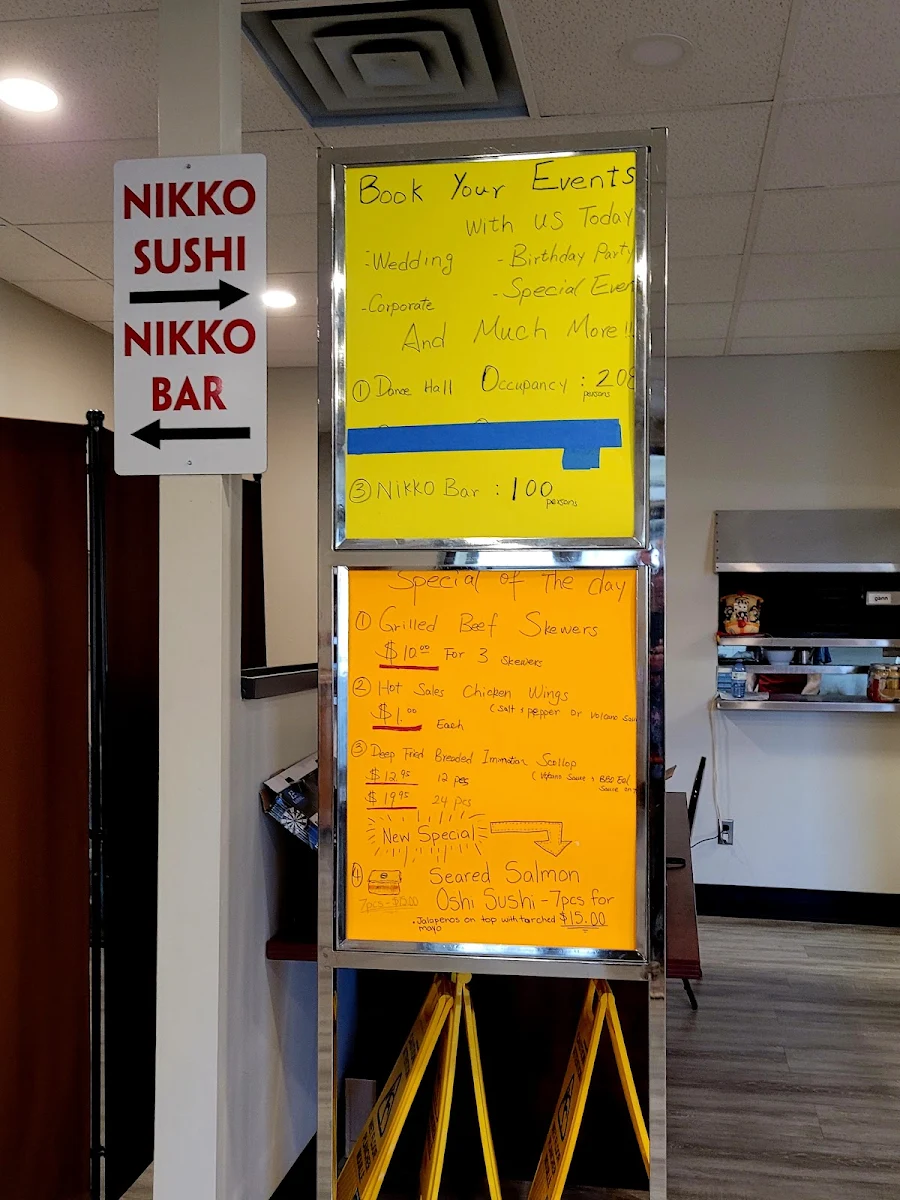 NIKKO
SUSHI
NIKKO
BAR
Book Your Events
with us Today
-Wedding - Birthday Party
-Corporate - Special Even
And Much More!!
① Dance Hall Occupancy : 208
persons
③ Nikko Bar : 100
persons
Special of The day
① Grilled Beef Skewers
$10.00 For 3 skewers
② Hot Sales Chicken Wings
(Salt & pepper or Volcano Sau
$1.00 Each
③ Deep Fried Breaded Scollop
$12.95 12 pcs (Volcano Sauce & BBQ Eel
Sauce on
$19.95 24 pcs
New Special
④ Seared Salmon
Oshi Sushi - 7pcs for
7pcs - $15.00
• Jalapenos on top with torched $15.00
mayo